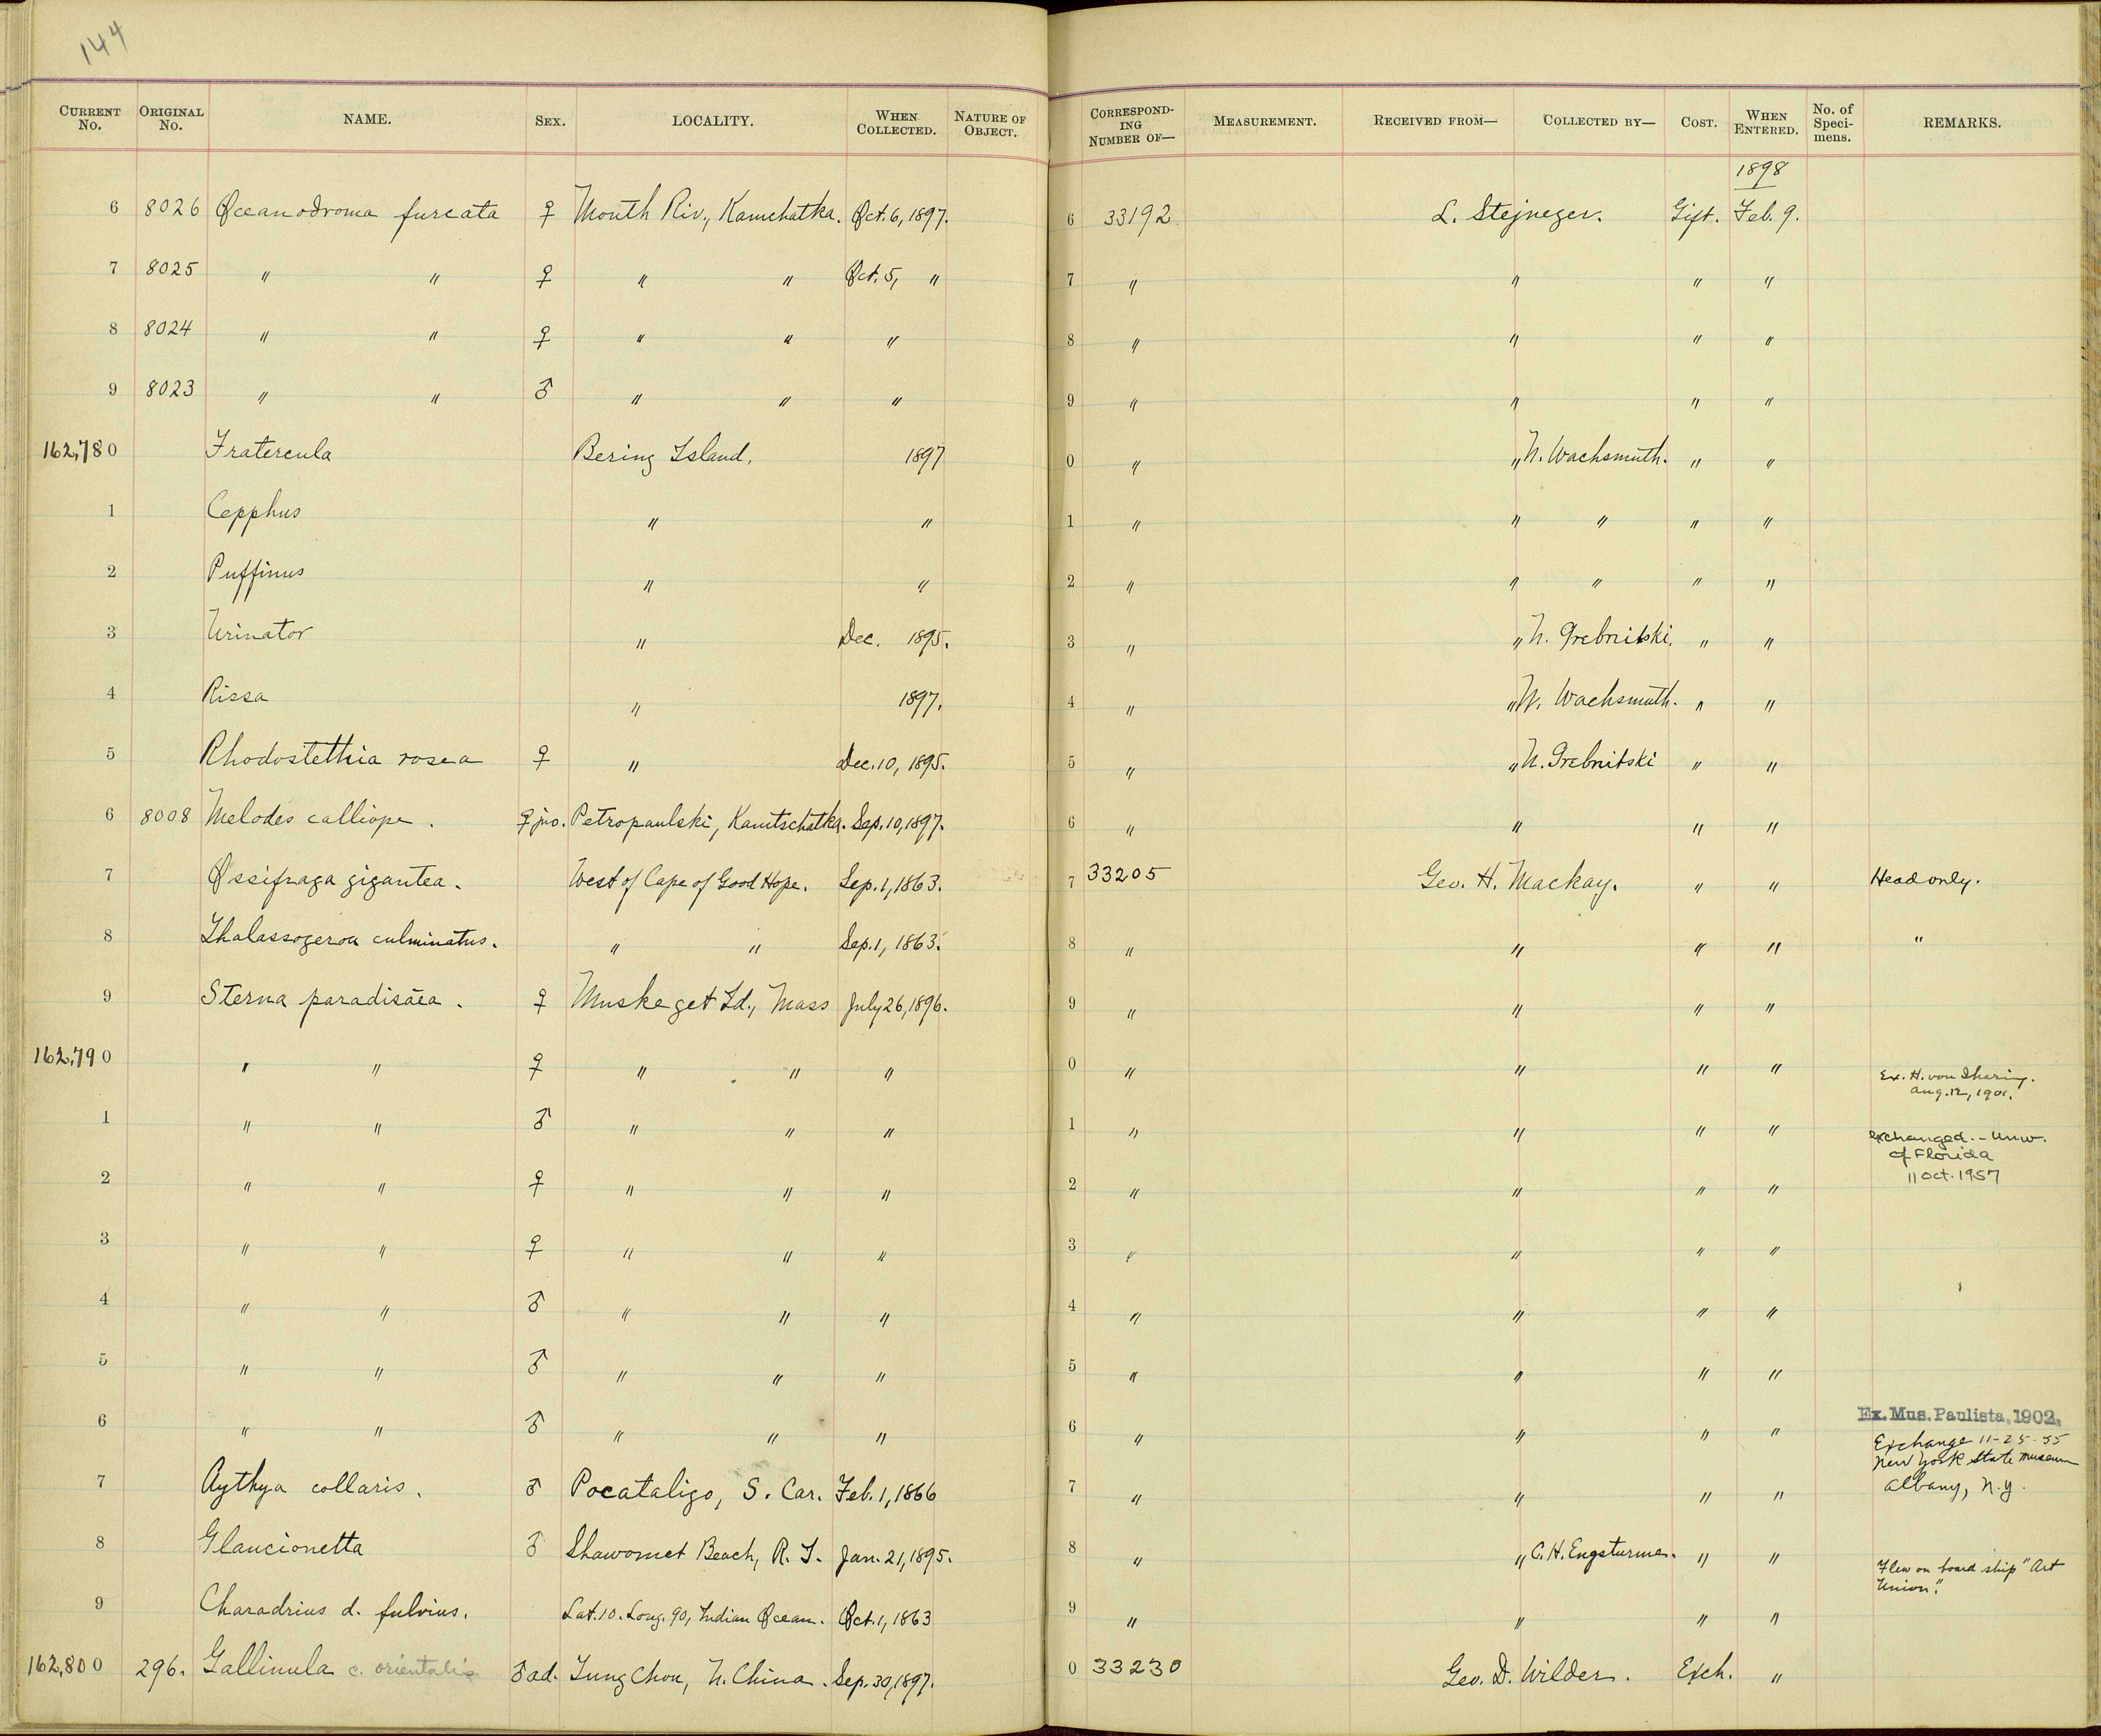 144
CURRENT No. ORIGINAL No. NAME. SEX. LOCALITY. WHEN COLLECTED. NATURE OF OBJECT. CORRESPONDING NUMBER OF— MEASUREMENT. RECEIVED FROM— COLLECTED BY— COST. WHEN ENTERED. No. of Specimens. REMARKS.
1898
6 8026 Oceanodroma furcata ♀ Mouth Riv., Kamchatka. Oct. 6, 1897. 6 33192 L. Stejneger. Gift. Feb. 9.
7 8025 " " ♀ " " Oct. 5, " 7 " " " "
8 8024 " " ♀ " " " 8 " " " "
9 8023 " " ♂ " " " 9 " " " "
162,780 Fratercula Bering Island. 1897 0 " " N. Wachsmuth. " "
1 Cepphus " " 1 " " " " "
2 Puffinus " " 2 " " " " "
3 Urinator " Dec. 1895. 3 " " N. Grebnitski. " "
4 Rissa " 1897. 4 " " N. Wachsmuth. " "
5 Rhodostethia rosea ♀ " Dec. 10, 1895. 5 " " N. Grebnitski " "
6 8008 Melodes calliope. ♀ juv. Petropaulski, Kamtschatka. Sep. 10, 1897. 6 " " " "
7 Ossifraga gigantea. West of Cape of Good Hope. Sep. 1, 1863. 7 33205 Geo. H. Mackay. " " Head only.
8 Thalassogeron culminatus. " " Sep. 1, 1863. 8 " " " " "
9 Sterna paradisaea. ♀ Muskeget Id., Mass July 26, 1896. 9 " " " "
162,790 " " ♀ " " " 0 " " " " Ex. H. von Ihering. Aug. 12, 1901.
1 " " ♂ " " " 1 " " " " exchanged. - Univ.
of Florida
11 Oct. 1957
2 " " ♀ " " " 2 " " " "
3 " " ♀ " " " 3 " " " "
4 " " ♂ " " " 4 " " " "
5 " " ♂ " " " 5 " " " "
6 " " ♂ " " " 6 " " " " Ex. Mus. Paulista, 1902.
Exchange 11-25-55
New York State Museum
Albany, N.Y.
7 Aythya collaris. ♂ Pocataligo, S. Car. Feb. 1, 1866 7 " " " "
8 Glaucionetta ♂ Shawomet Beach, R. I. Jan. 21, 1895. 8 " " C. H. " "
Flew on board ship "Art
Union".
9 Charadrius d. fulvius. Lat. 10. Long. 90, Indian Ocean. Oct. 1, 1863 9 " " " "
162,800 296. Gallinula c. orientalis ♂ ad. Tung Chou, N. China. Sep. 30, 1897. 0 33230 Geo. D. Wilder. Exch. "